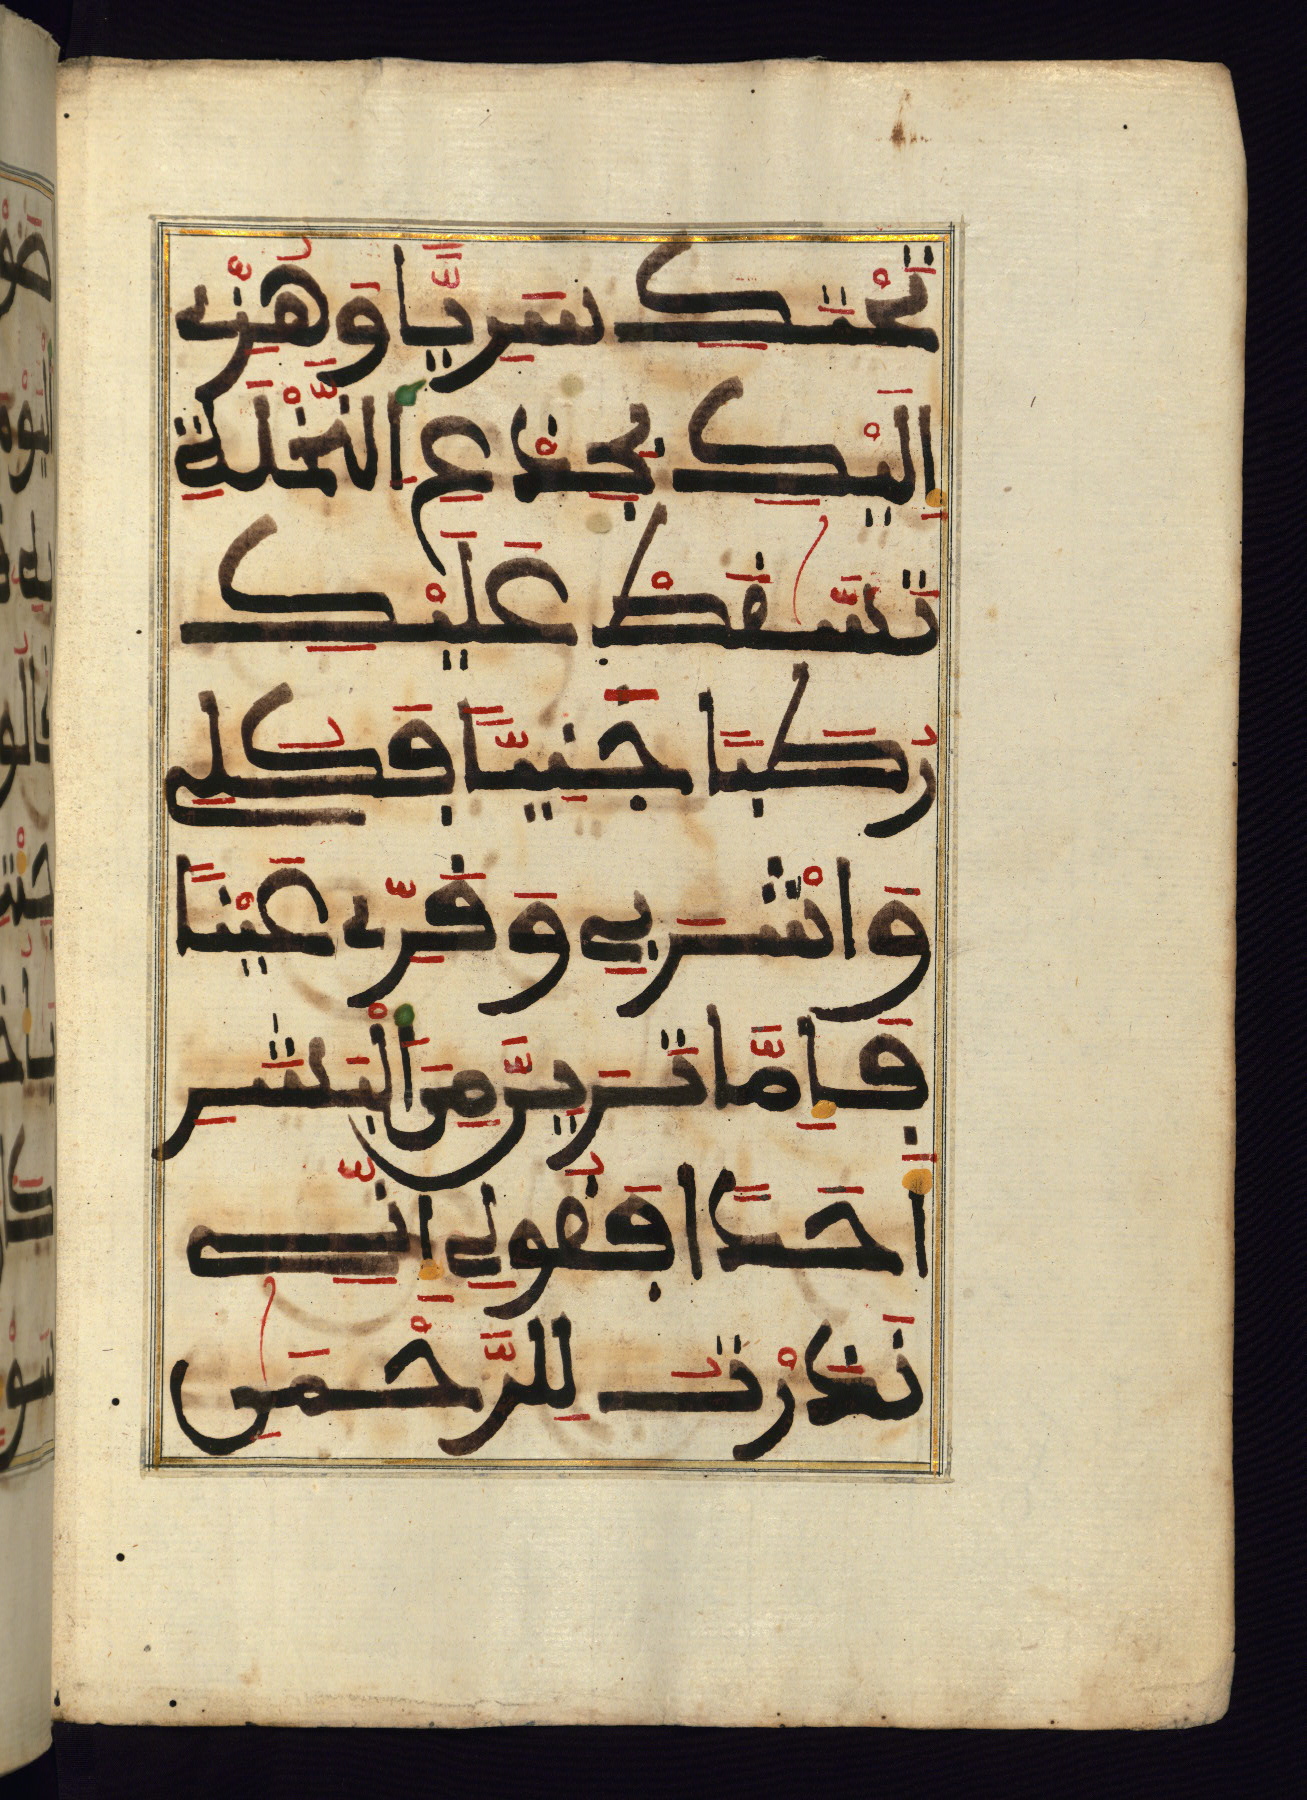 تَحْتَكِ سَرِيًّا وَهُزِّے
إِلَيْكِ بِجِذْعِ اِلنَّخْلَةِ
تَسَّٰقَطْ عَلَيْكِ
رُطَبًا جَنِيًّا فَكُلِي
وَاشْرَبِي وَقَرِّے عَيْنًا
فَإِمَّا تَرَيِنَّ مِنَ اَلْبَشَرِ
أَحَدًا فَقُولِے إِنِّے
نَذَرْتُ لِلرَّحْمَٰنِ